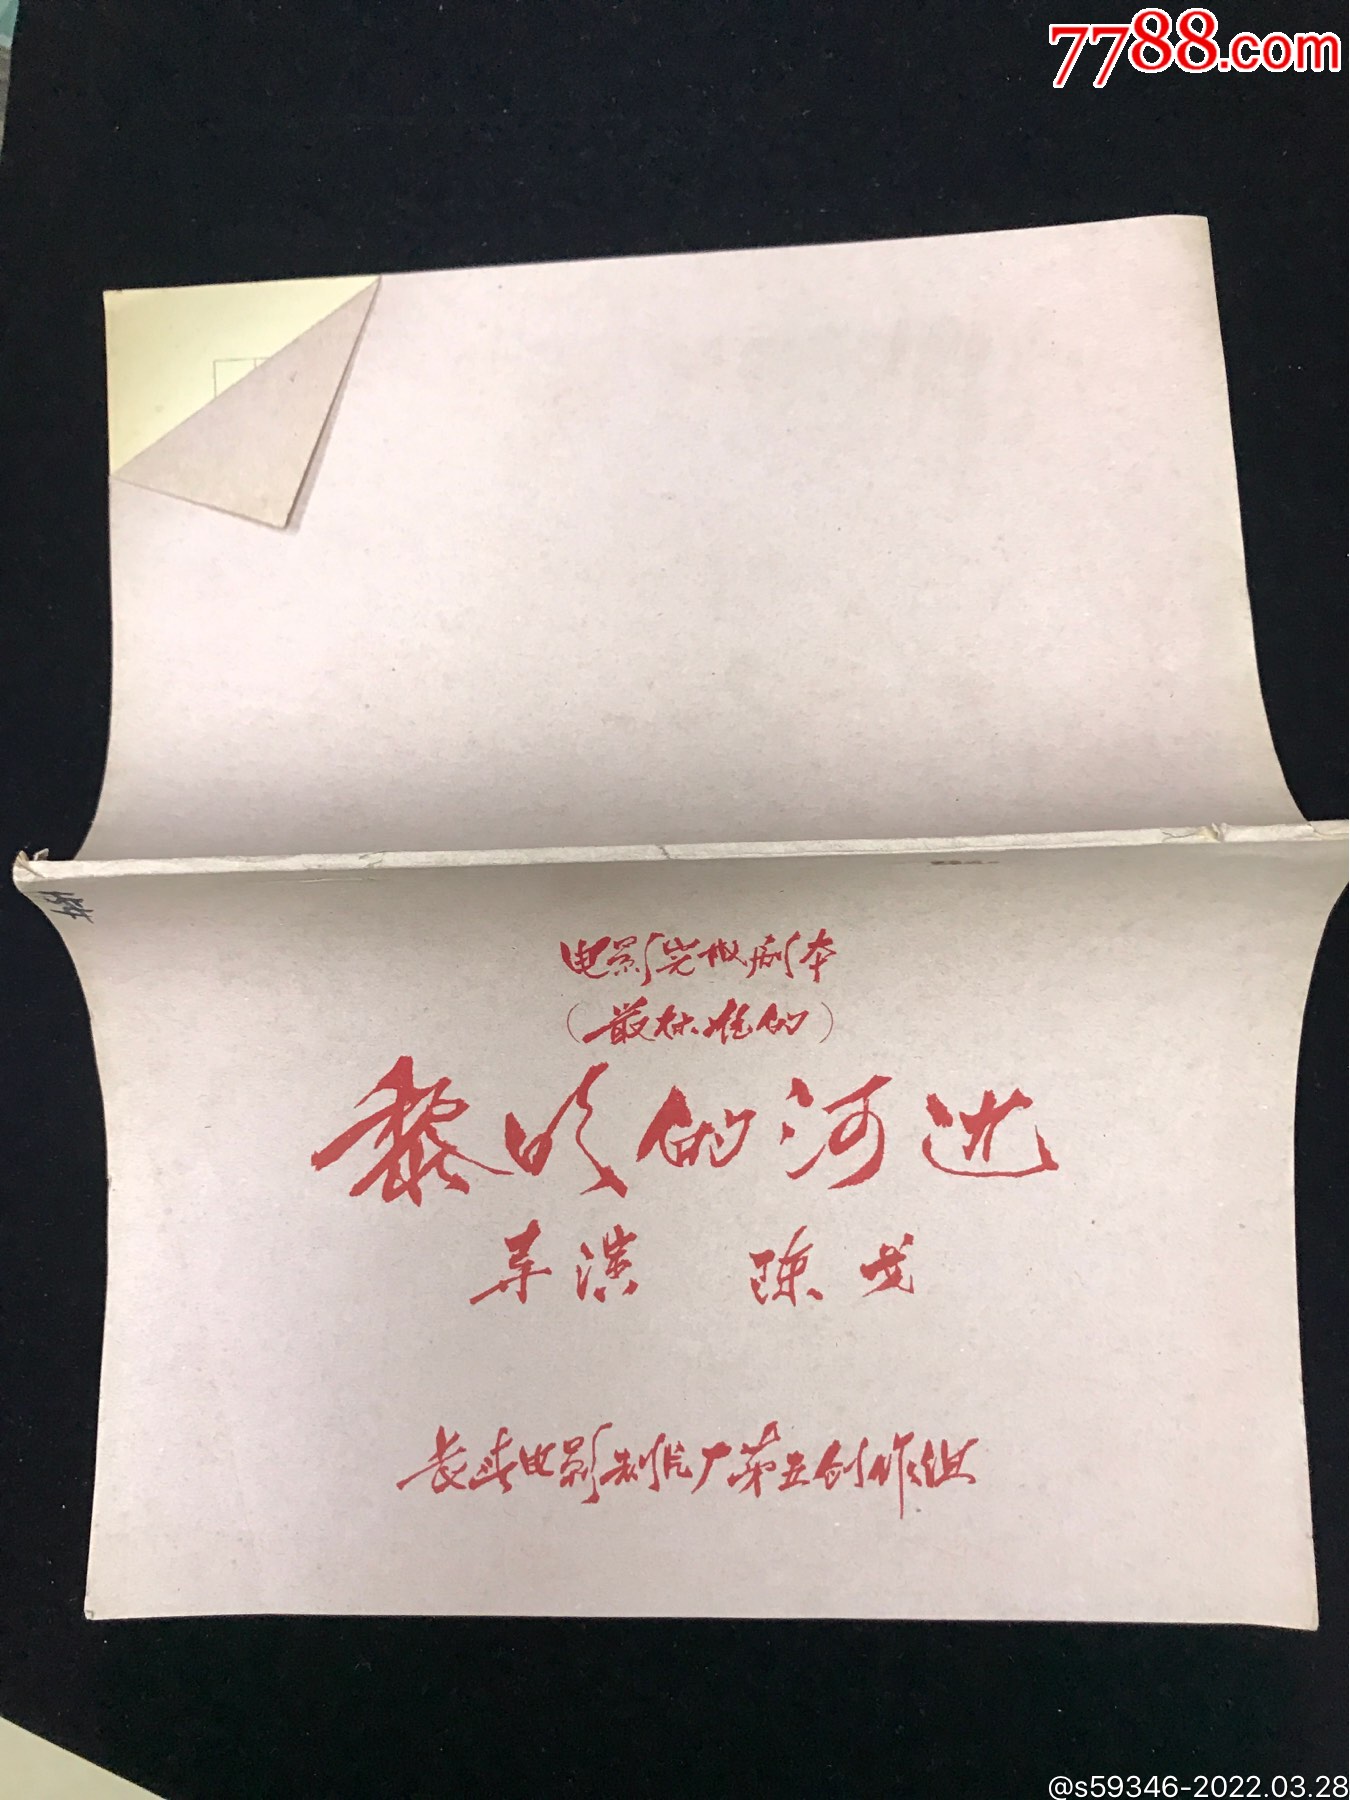 7788.com
电影完成剧本
(最标准的)
黎明的河边
导演 陈戈
长春电影制片厂第五创作组
@s59346-2022.03.28